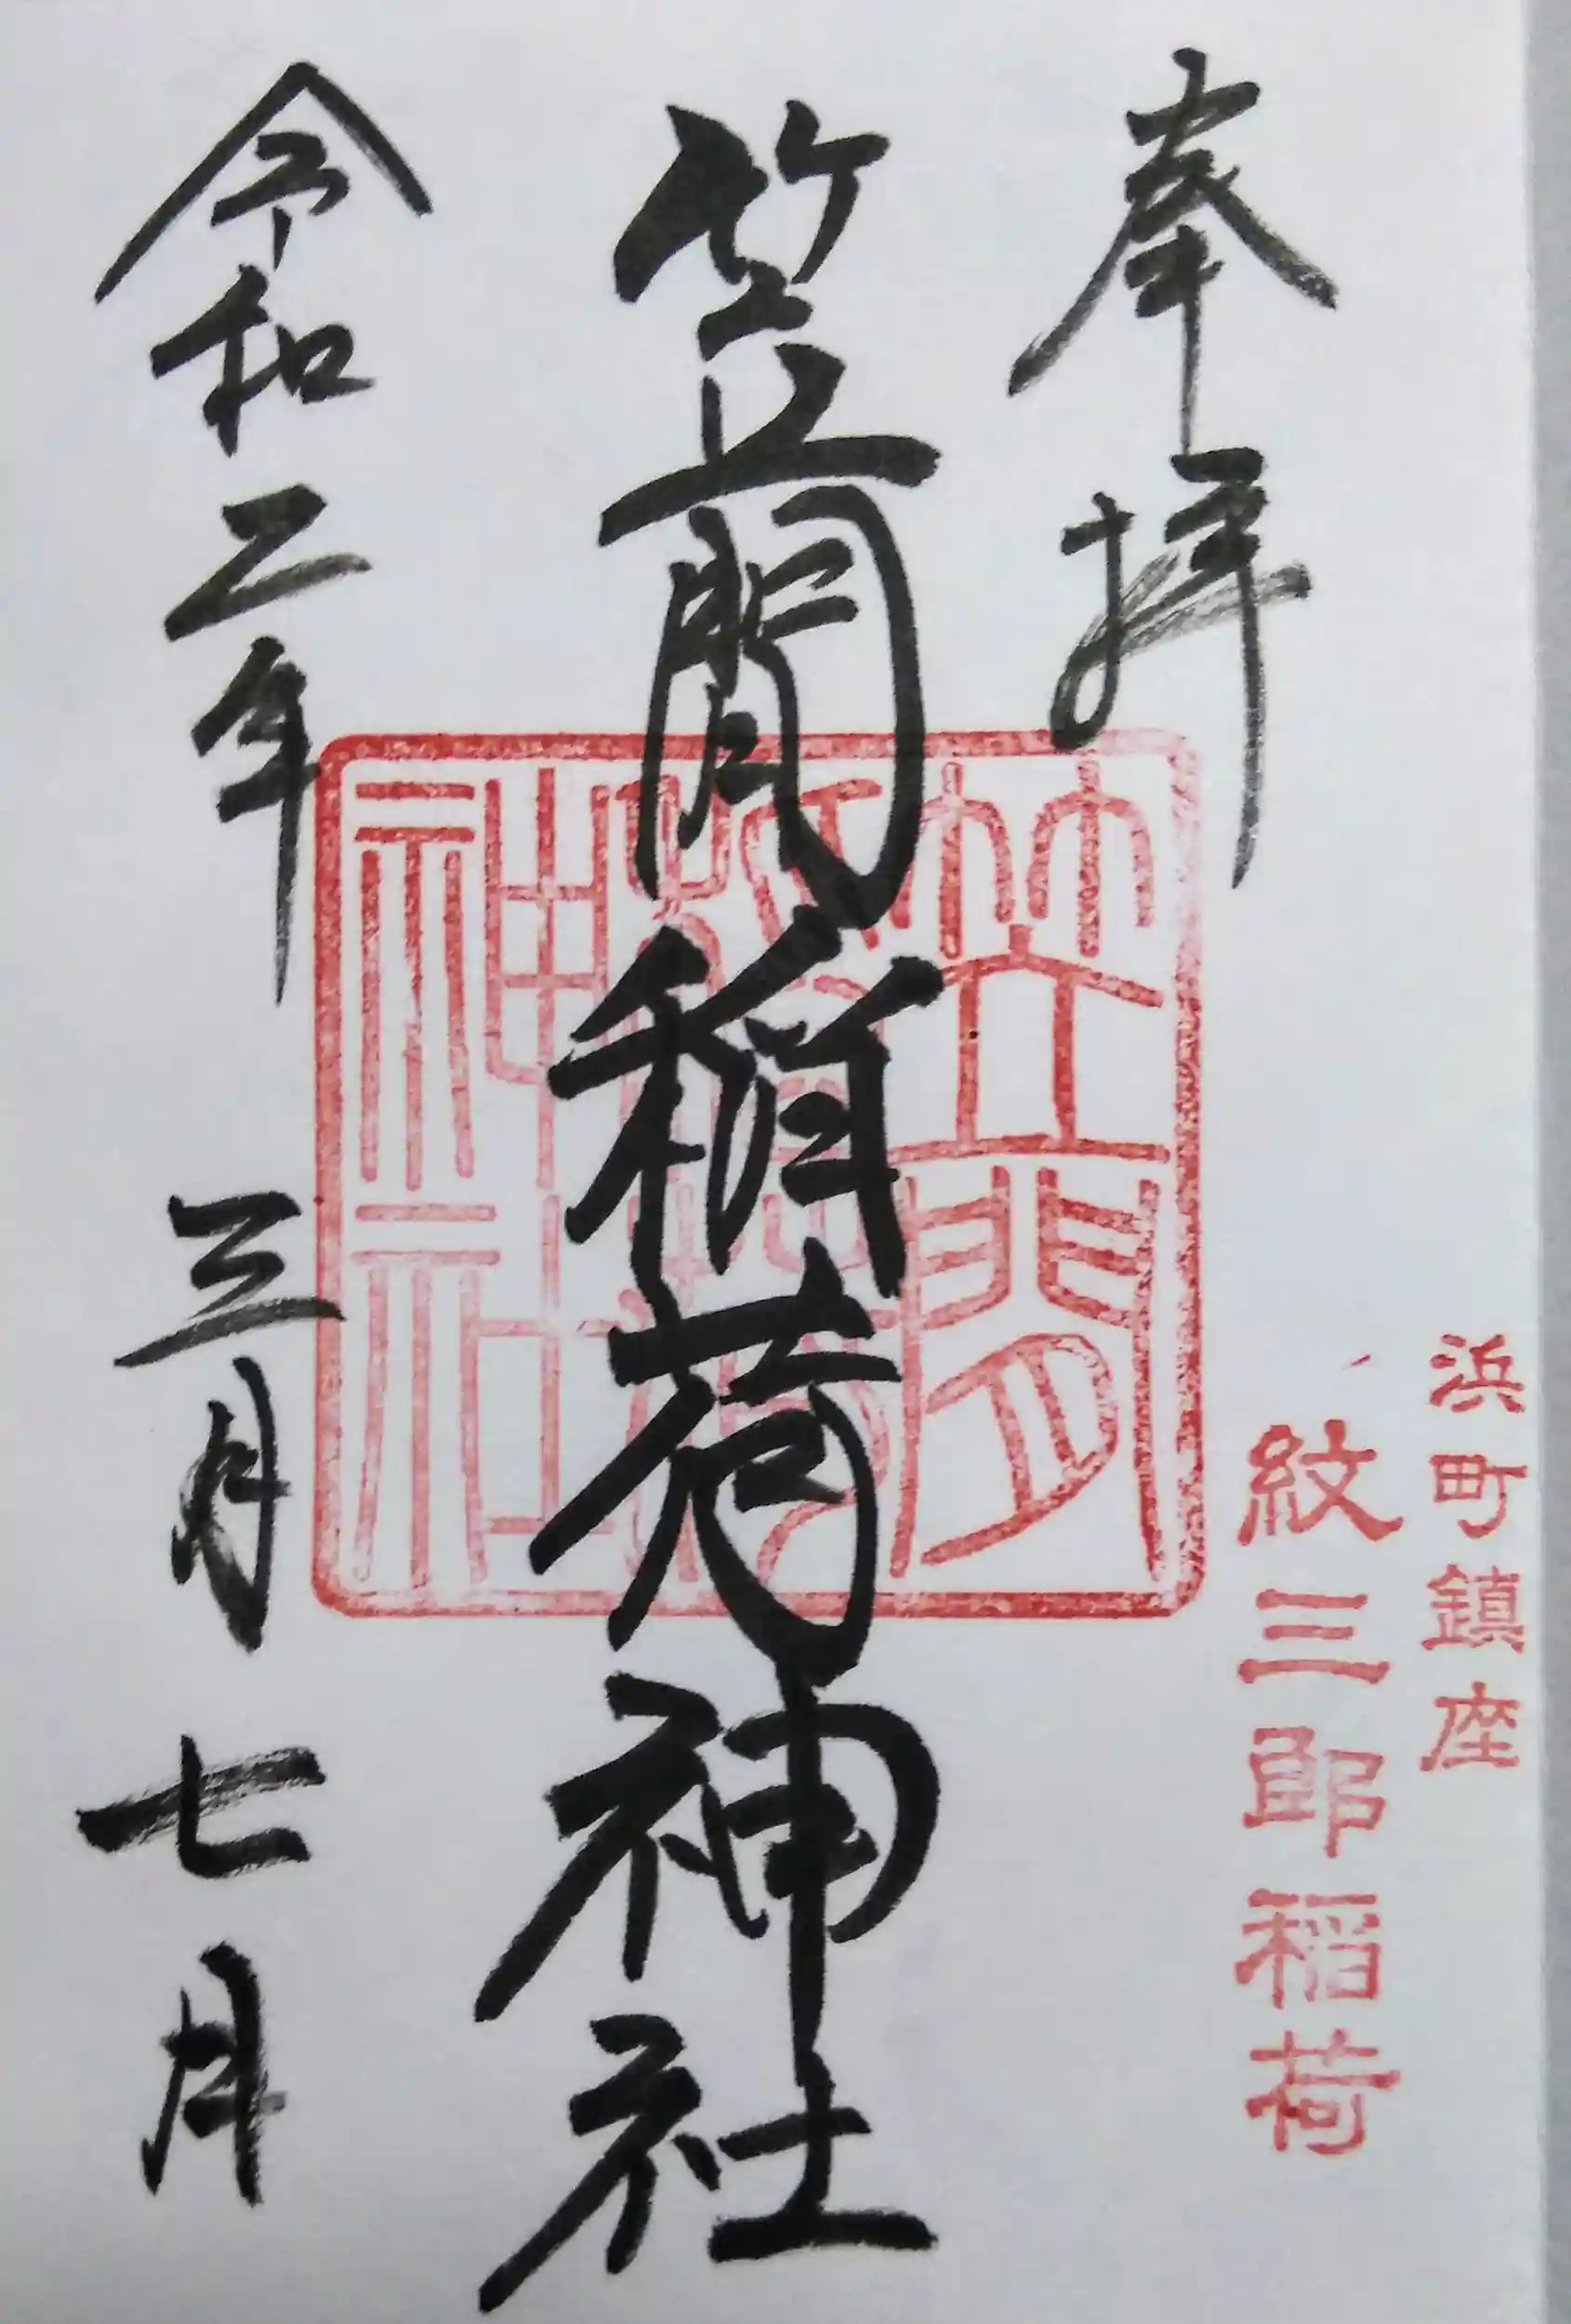 浜町鎮座
紋三郎稲荷
奉拝
笠間稲荷神社
令和二年三月七月
笠間
神社